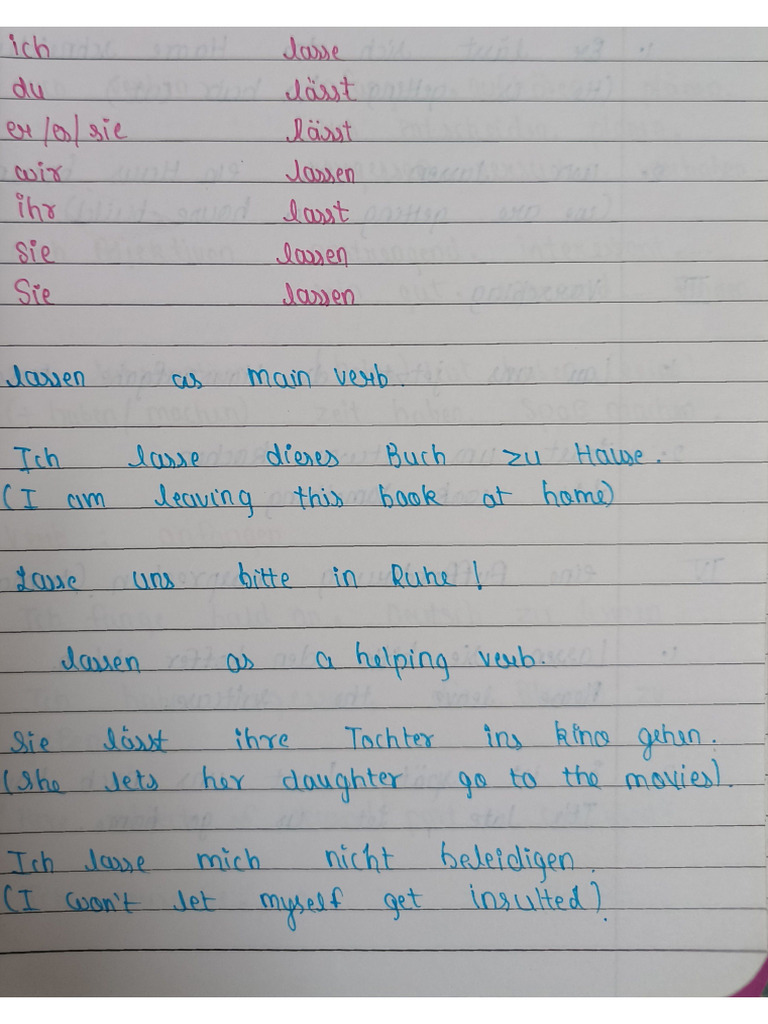 ich lasse
du lässt
er/es/sie lässt
wir lassen
ihr lasst
sie lassen
Sie lassen
lassen as main verb.
Ich lasse dieses Buch zu Hause.
(I am leaving this book at home)
Lasse uns bitte in Ruhe!
lassen as a helping verb.
Sie lässt ihre Tochter ins kino gehen.
(She lets her daughter go to the movies).
Ich lasse mich nicht beleidigen.
(I won't let myself get insulted).